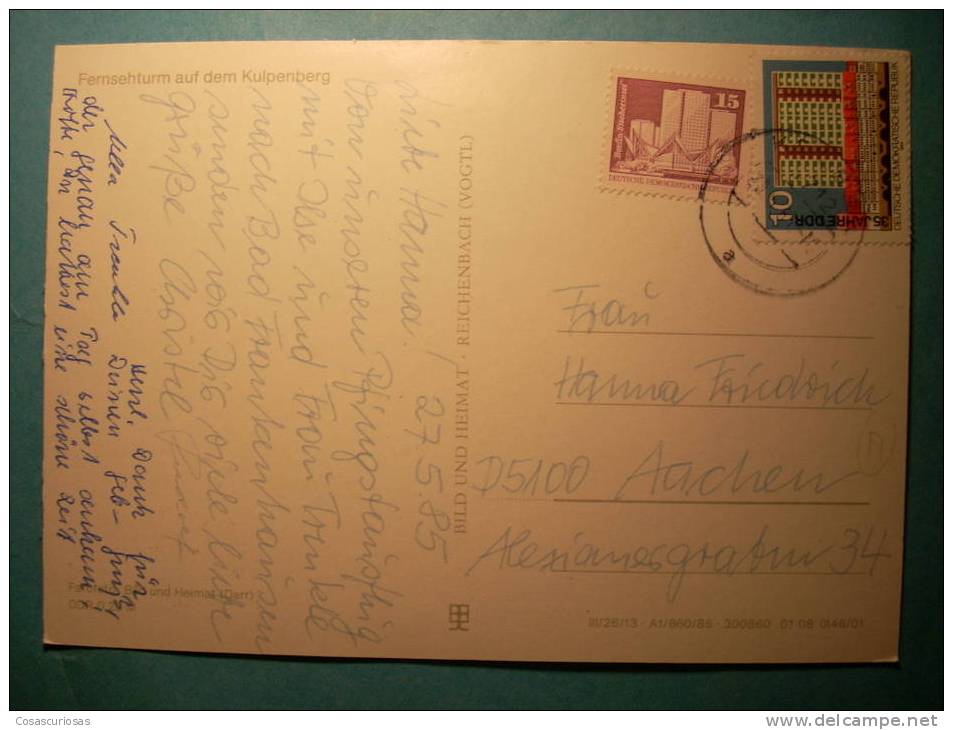 Fernsehturm auf dem Kulpenberg
Liebe Hanna! 27.5.85
Von unserem Pfingstausflug
mit Ilse und Frau Trenkle
nach Bad Frankenhausen
senden wir Dir viele liebe
Grüße Christel
Herzl. Dank für
Deinen geb-
der genau am Tag selbst ankam,
eine schöne Zeit
Farbfoto: und Heimat (Darr)
DDR
BILD UND HEIMAT · REICHENBACH (VOGTL)
III/26/13 · A1/860/85 · 300860 01 08 0146/01
15
DEUTSCHE DEMOKRATISCHE REPUBLIK
10
35 JAHRE DDR
DEUTSCHE DEMOKRATISCHE REPUBLIK
Frau
Hanna Friedrich
D5100 Aachen
Alexianergraben 34
Cosascuriosas
www.delcampe.net